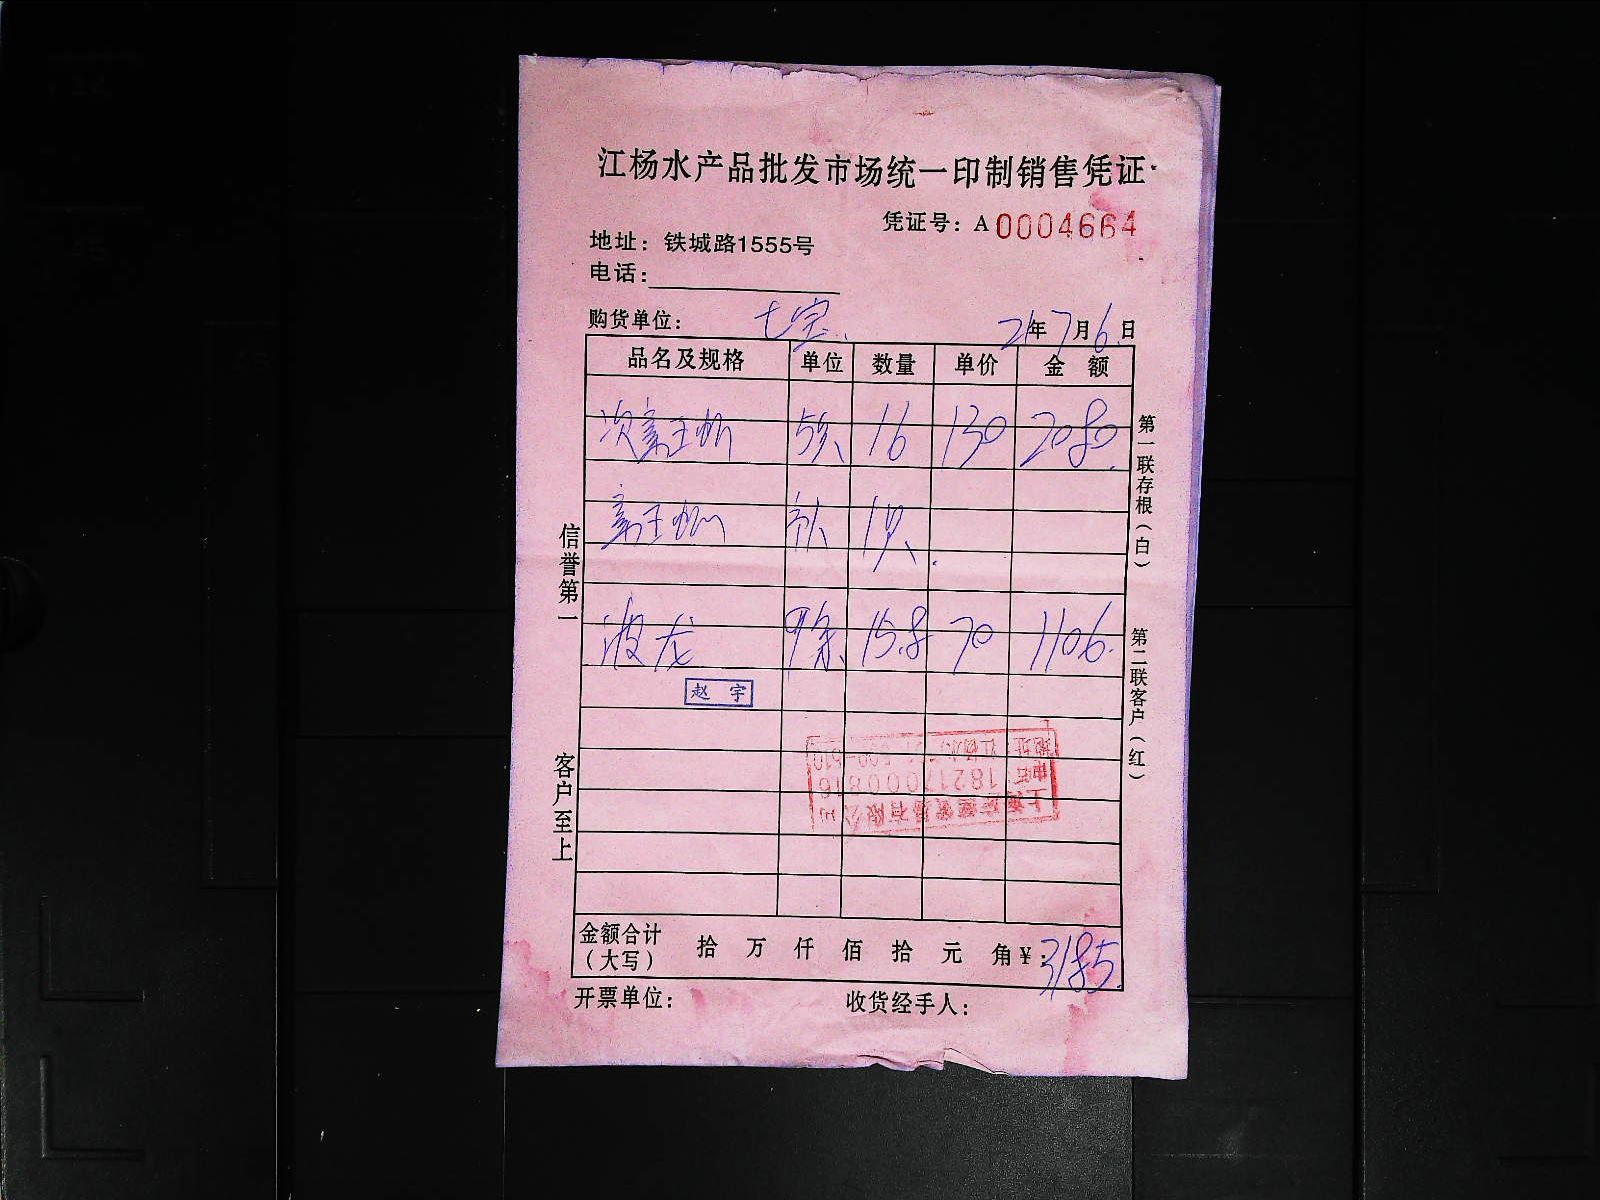 江杨水产品批发市场统一印制销售凭证
凭证号：A 0004664
地址：铁城路1555号
电话：
购货单位： 七宝 21年7月6日
品名及规格 单位 数量 单价 金额
5只 16 130 2080
补 1只
波龙 9条 15.8 70 1106
赵宇
地址：江杨水产
电话：18217000816
上海 贸易有限公司
金额合计（大写） 拾 万 仟 佰 拾 元 角 ¥：3185
开票单位： 收货经手人：
信誉第一
客户至上
第一联存根（白）
第二联客户（红）